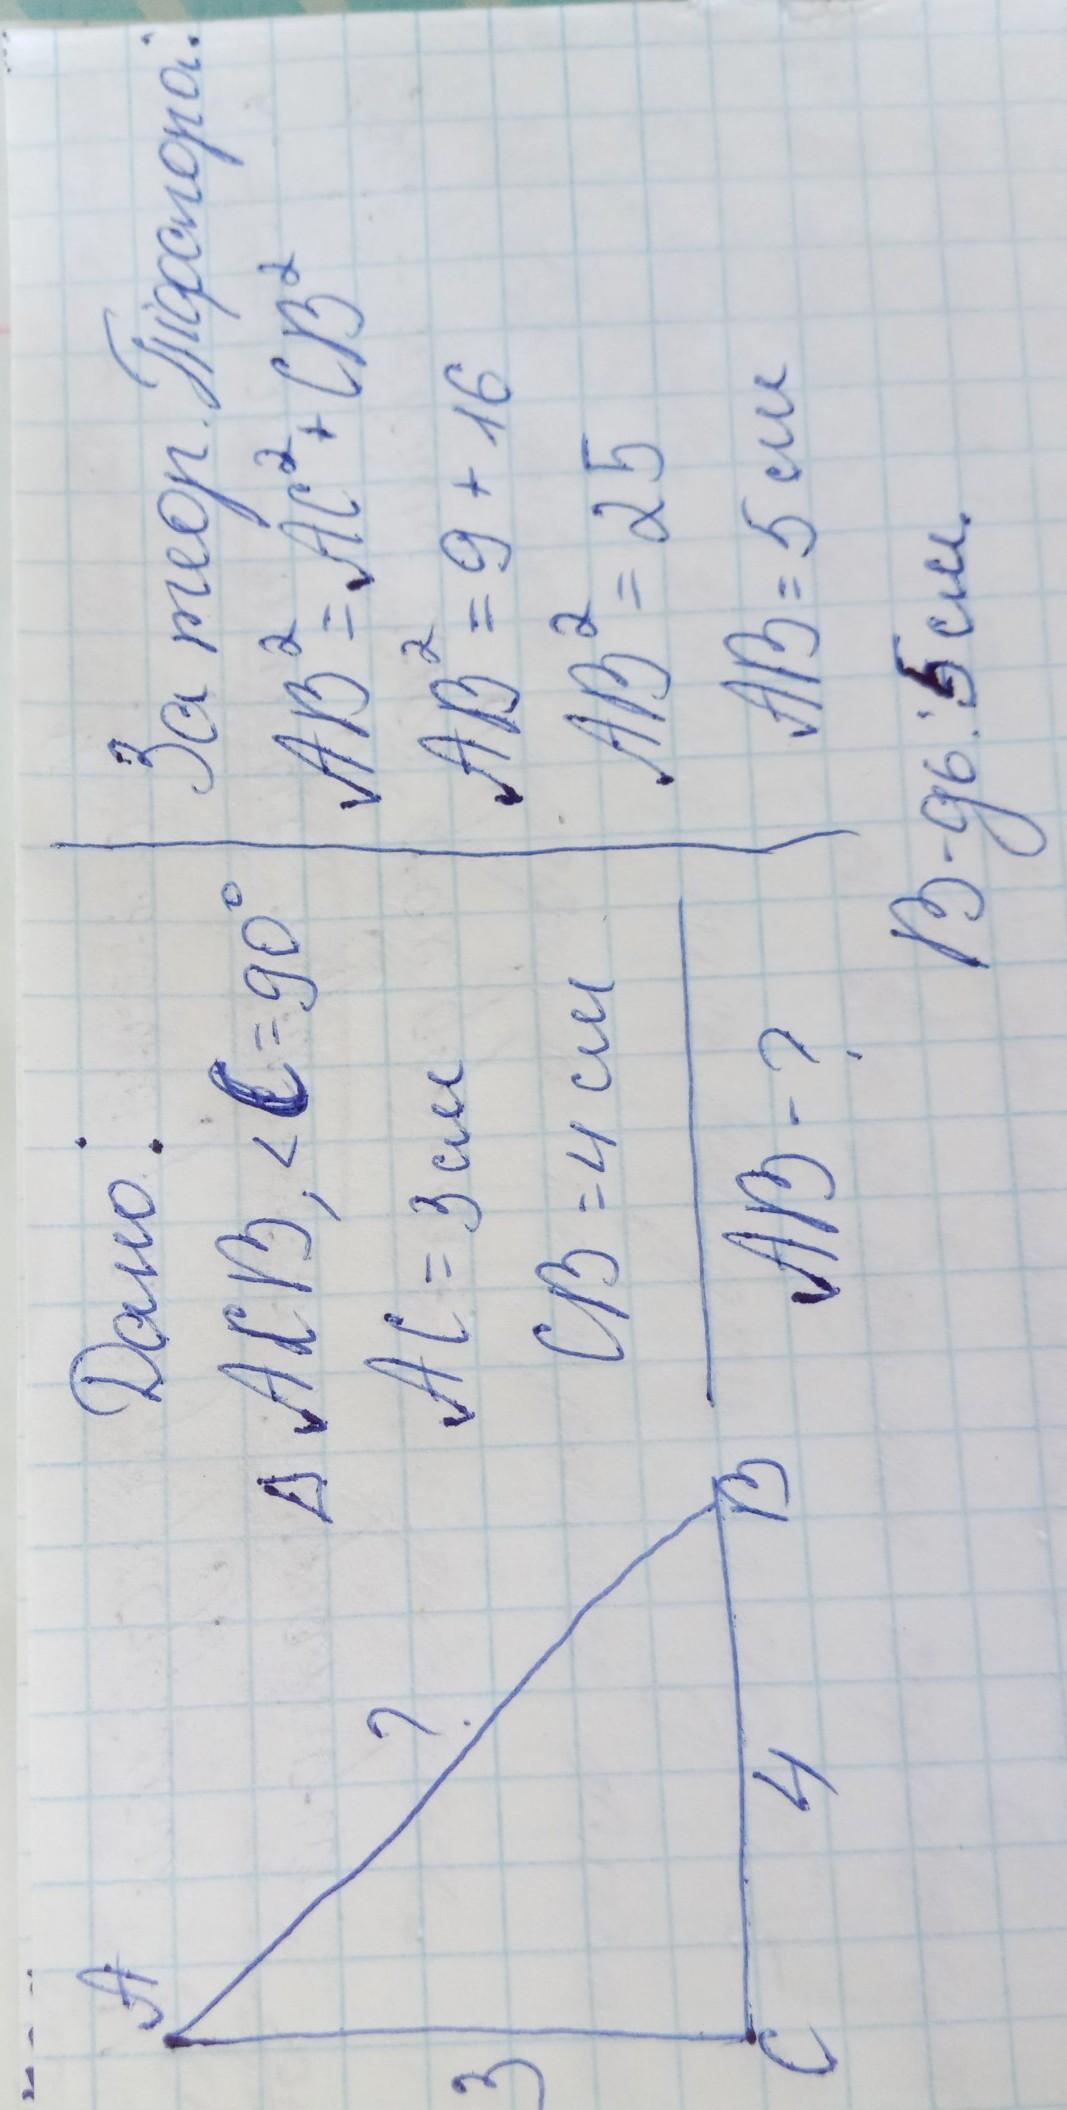 Дано:
Δ ACB, <C=90°
AC = 3 см
CB = 4 см
AB - ?
За теор. Піфагора:
AB² = AC² + CB²
AB² = 9 + 16
AB² = 25
AB = 5 см
В-дь: 5 см.
A
?
3
C
4
B